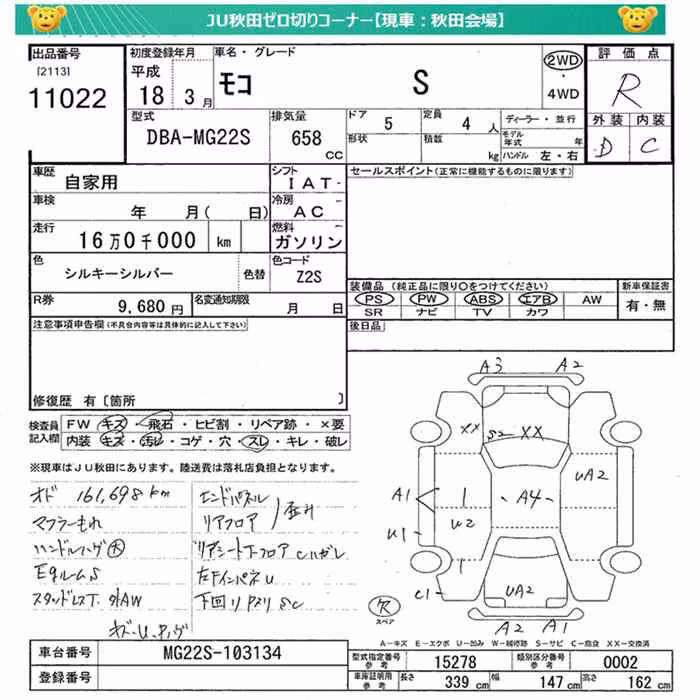 JU秋田ゼロ切りコーナー【現車：秋田会場】
出品番号
[2113]
11022
初度登録年月
平成
18 3月
車名・グレード
モコ S
2WD
・
4WD
評価点
R
外装 内装
D C
型式
DBA-MG22S
排気量
658
CC
ドア 5
形状
定員 4 人
積数 kg
ディーラー・並行
モデル年式 年
ハンドル 左・右
車歴
自家用
シフト
IAT-
車検
年 月( 日)
冷房
AC
走行
16万0千000 km
燃料
ガソリン
色
シルキーシルバー
色替
色コード
Z2S
R券
9,680円
名変通知期限
月 日
セールスポイント(正常に機能するものに限ります)
装備品 (純正品に限り○をつけてください)
PS PW ABS エアB AW
SR ナビ TV カワ
新車保証書
有・無
後日品
注意事項申告欄(不具合内容等は具体的に記入して下さい)
修復歴 有〔箇所 〕
検査員
記入欄
FW キズ・飛石・ヒビ割・リペア跡・×要
内装 キズ・汚レ・コゲ・穴・スレ・キレ・破レ
※現車はJU秋田にあります。陸送費は落札店負担となります。
オド 161,698km
マフラーもれ
ハンドルハゲ大
EgルームS
スタッドレスT. 外AW
エンドパネル
リアフロア
歪み
リアシート下フロア Cハガレ
左FインパネU
下回り サビ SC
A3 A2
XX
S2 XX
UA2
A1
A4
U1
U2
C1
UA2
A2 A1
欠
スペア
A-キズ E-エクボ U-凹み W-補修跡 S-サビ C-腐食 XX-交換済
車台番号
MG22S-103134
登録番号
型式指定番号
参考
15278
類別区分番号
参考
0002
車庫証明用
参考
長さ
339 cm
幅
147 cm
高さ
162 cm